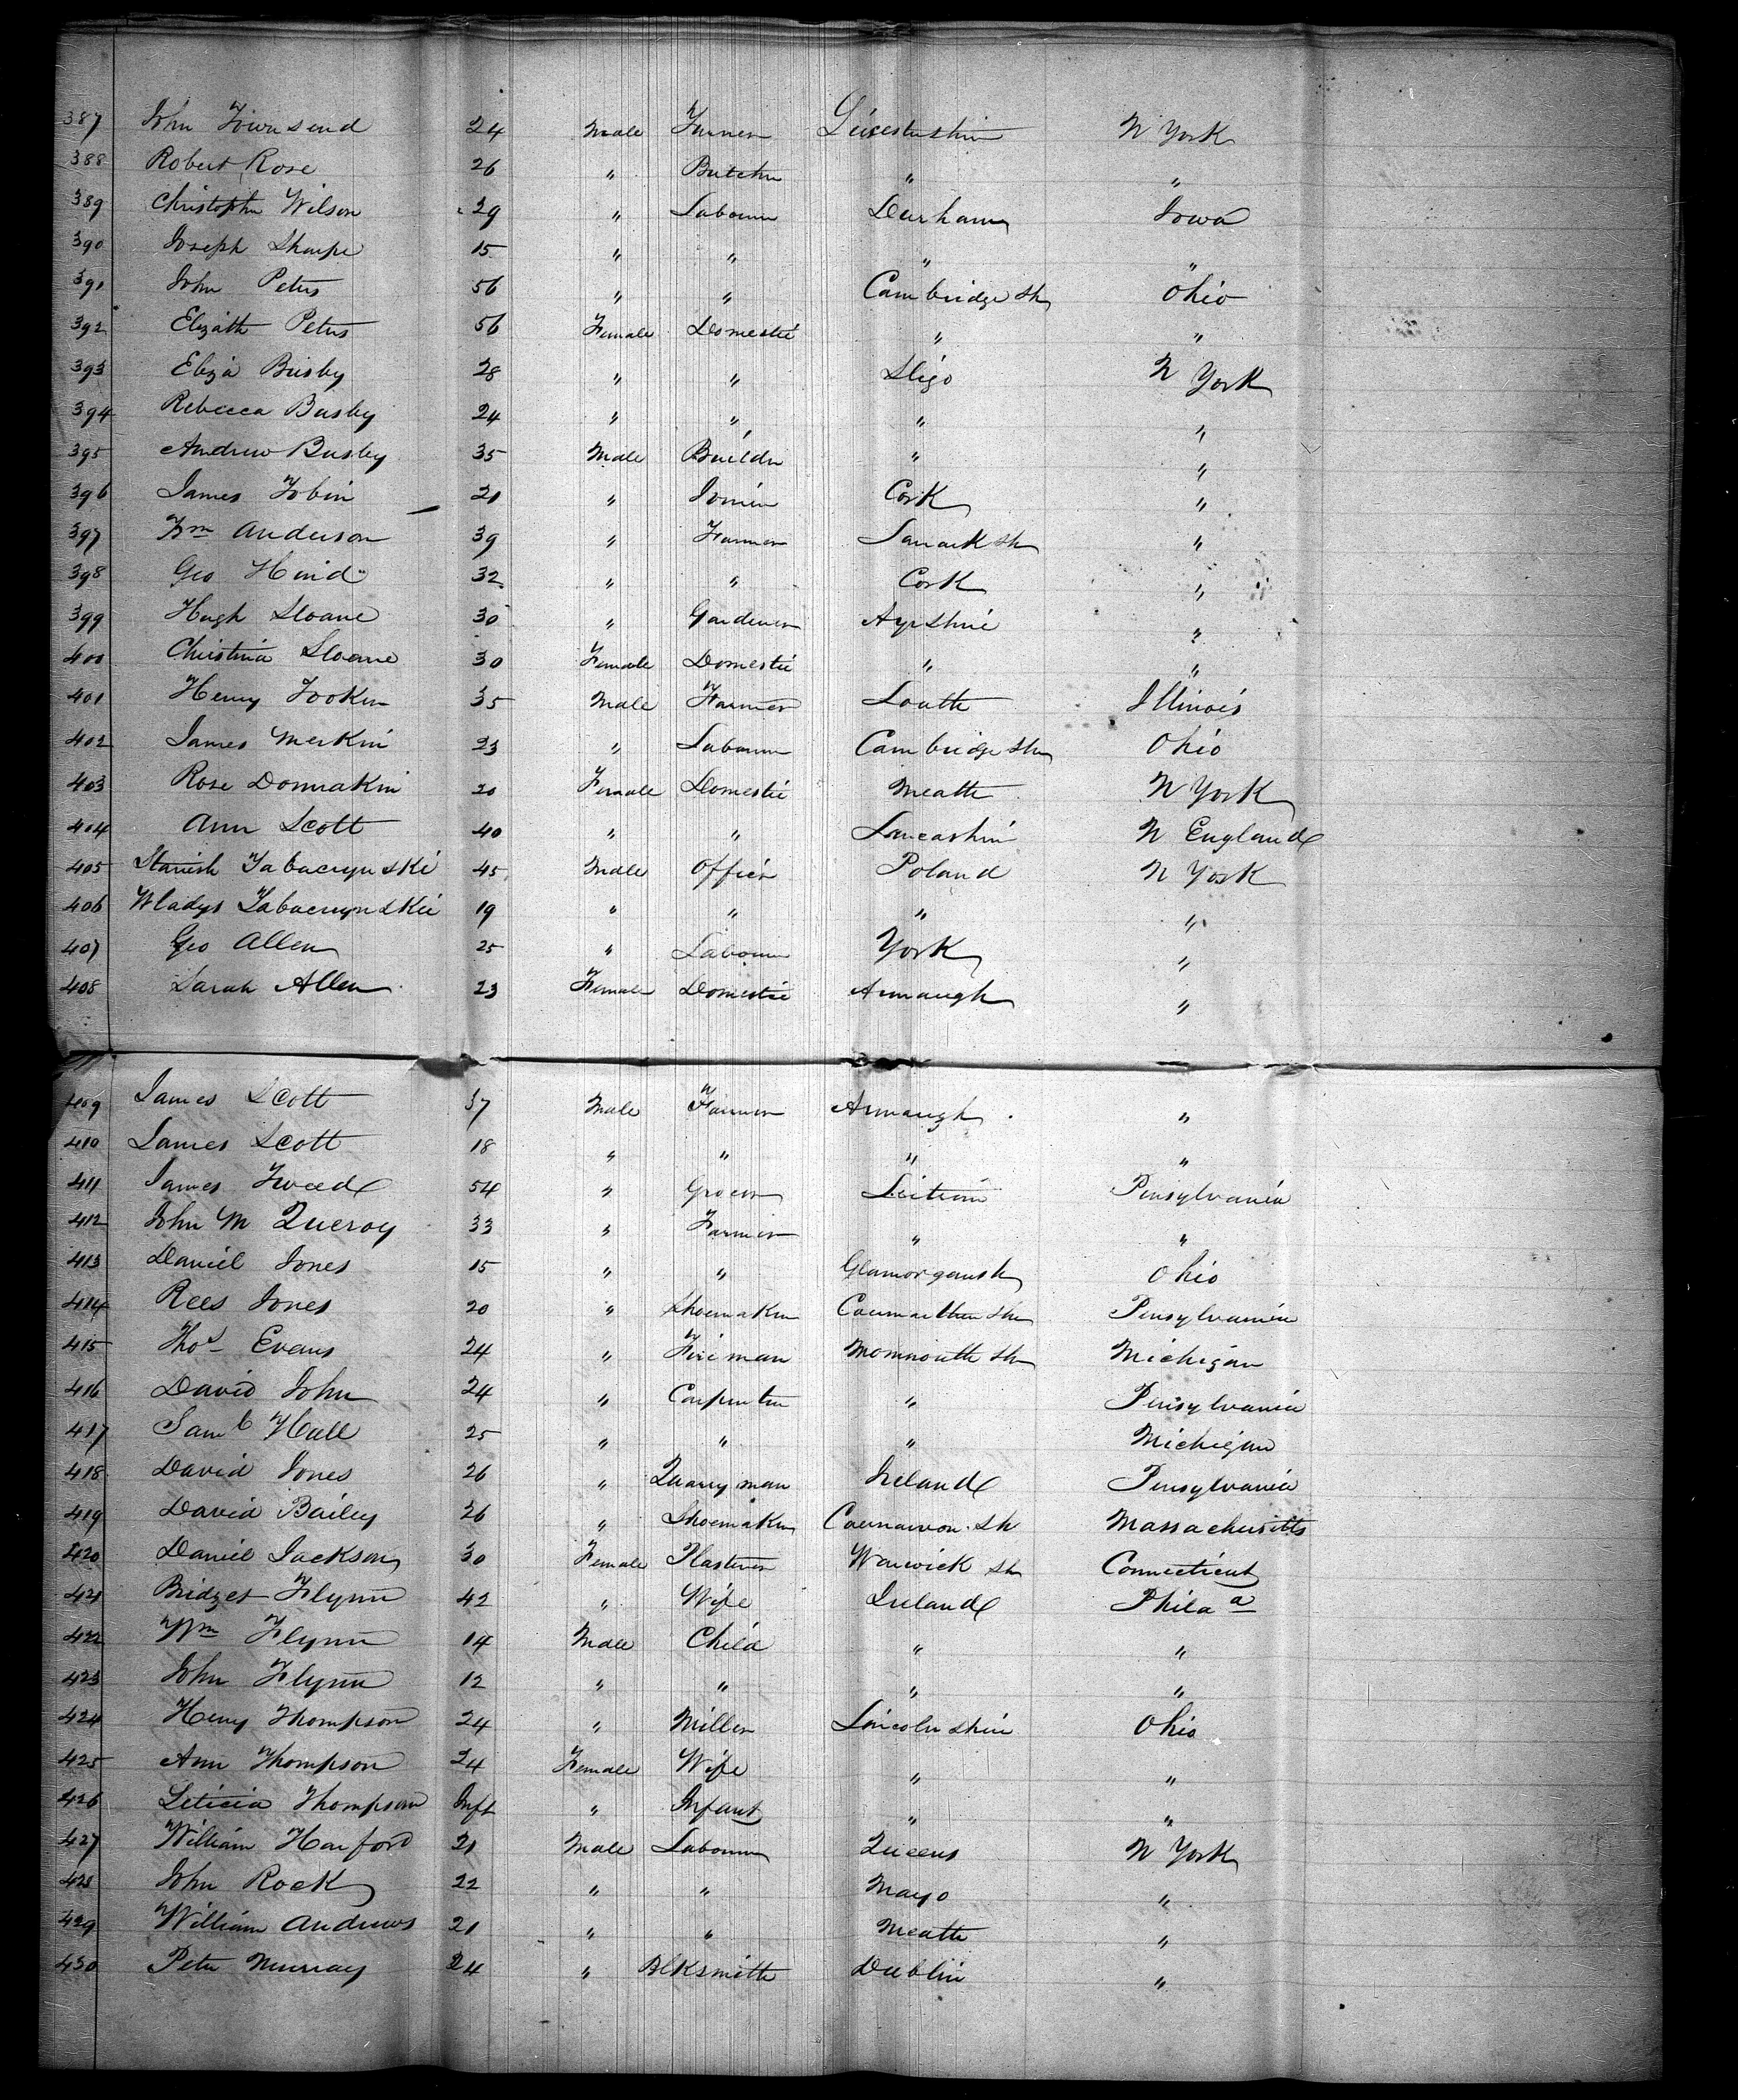 387 John Townsend 24 Male Farmer Leicestershire N York
388 Robert Rose 26 " Butcher " "
389 Christopher Wilson 29 " Labourer Durham Iowa
390 Joseph Sharpe 15 " " " "
391 John Peters 56 " " Cambridge Sh Ohio
392 Elizath Peters 56 Female Domestic " "
393 Eliza Busby 28 " " Sligo N York
394 Rebecca Busby 24 " " " "
395 Andrew Busby 35 Male Builder " "
396 James Tobin 21 " Joiner Cork "
397 Wm Anderson 39 " Farmer Lanark Sh "
398 Geo Hind 32 " " Cork "
399 Hugh Sloane 30 " Gardener Ayrshire "
400 Christina Sloane 30 Female Domestic " "
401 Henry Tooker 35 Male Farmer Louth Illinois
402 James Merkin 23 " Labourer Cambridge Sh Ohio
403 Rose Donnakin 20 Female Domestic Meath N York
404 Ann Scott 40 " " Lancashire N England
405 Stanish Tabacrynski 45 Male Officer Poland N York
406 Wladys Tabacrynskie 19 " " " "
407 Geo Allen 25 " Labourer York "
408 Sarah Allen 23 Female Domestic Armaugh "
409 James Scott 37 Male Farmer Armaugh "
410 James Scott 18 " " " "
411 James Tweed 54 " Grocer Leitrim Pensylvania
412 John M Queroy 33 " Farmer " "
413 Daniel Jones 15 " " Glamorgansh Ohio
414 Rees Jones 20 " Shoemaker Caermarthen Sh Pensylvania
415 Thos Evans 24 " Fireman Monmouth Sh Michigan
416 David John 24 " Carpenter " Pensylvania
417 Saml Hall 25 " " " Michigan
418 David Jones 26 " Quarryman Ireland Pensylvania
419 David Bailey 26 " Shoemaker Caernarvon Sh Massachusetts
420 Daniel Jackson 30 Female Plasterer Warwick Sh Connecticut
421 Bridget Flynn 42 " Wife Ireland Phila a
422 Wm Flynn 14 Male Child " "
423 John Flynn 12 " " " "
424 Henry Thompson 24 " Miller Lincolnshire Ohio
425 Ann Thompson 24 Female Wife " "
426 Leticia Thompson Inft " Infant " "
427 William Harford 21 Male Labourer Queens N York
428 John Rock 22 " " Mayo "
429 William Andrews 21 " " Meath "
430 Peter Murray 24 " Blksmith Dublin "